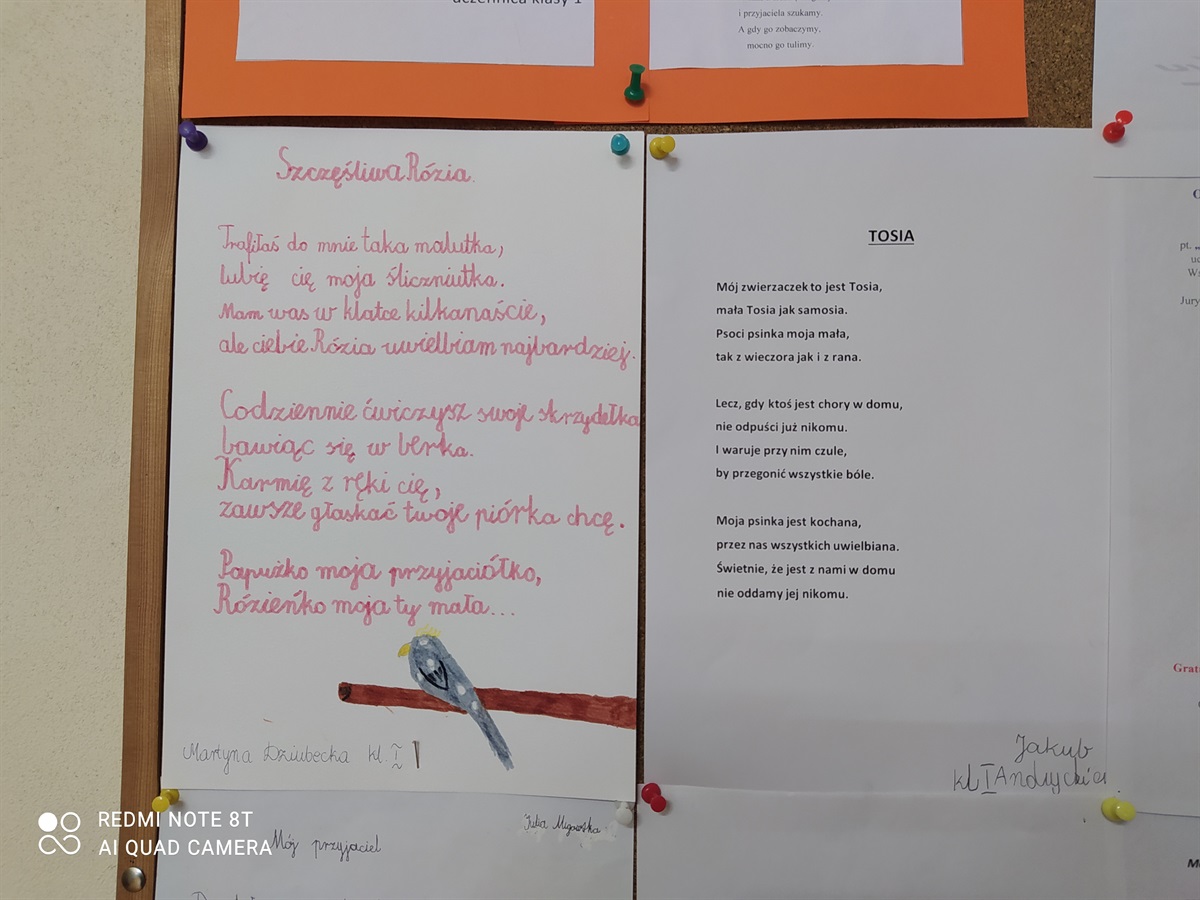 uczennica klasy 1
i przyjaciela szukamy.
A gdy go zobaczymy,
mocno go tulimy.
Szczęśliwa Rózia.
Trafiłaś do mnie taka malutka,
lubię cię moja śliczniutka.
Mam was w klatce kilkanaście,
ale ciebie Rózia uwielbiam najbardziej.
Codziennie ćwiczysz swoje skrzydełka
bawiąc się w berka.
Karmię z ręki cię,
zawsze głaskać twoje piórka chcę.
Papużko moja przyjaciółko,
Rózieńko moja ty mała...
Martyna Dziubecka kl. I
TOSIA
Mój zwierzaczek to jest Tosia,
mała Tosia jak samosia.
Psoci psinka moja mała,
tak z wieczora jak i z rana.
Lecz, gdy ktoś jest chory w domu,
nie odpuści już nikomu.
I waruje przy nim czule,
by przegonić wszystkie bóle.
Moja psinka jest kochana,
przez nas wszystkich uwielbiana.
Świetnie, że jest z nami w domu
nie oddamy jej nikomu.
Jakub
kl I
pt.
Jury
Grat
Julia
Mój przyjaciel
REDMI NOTE 8T
AI QUAD CAMERA